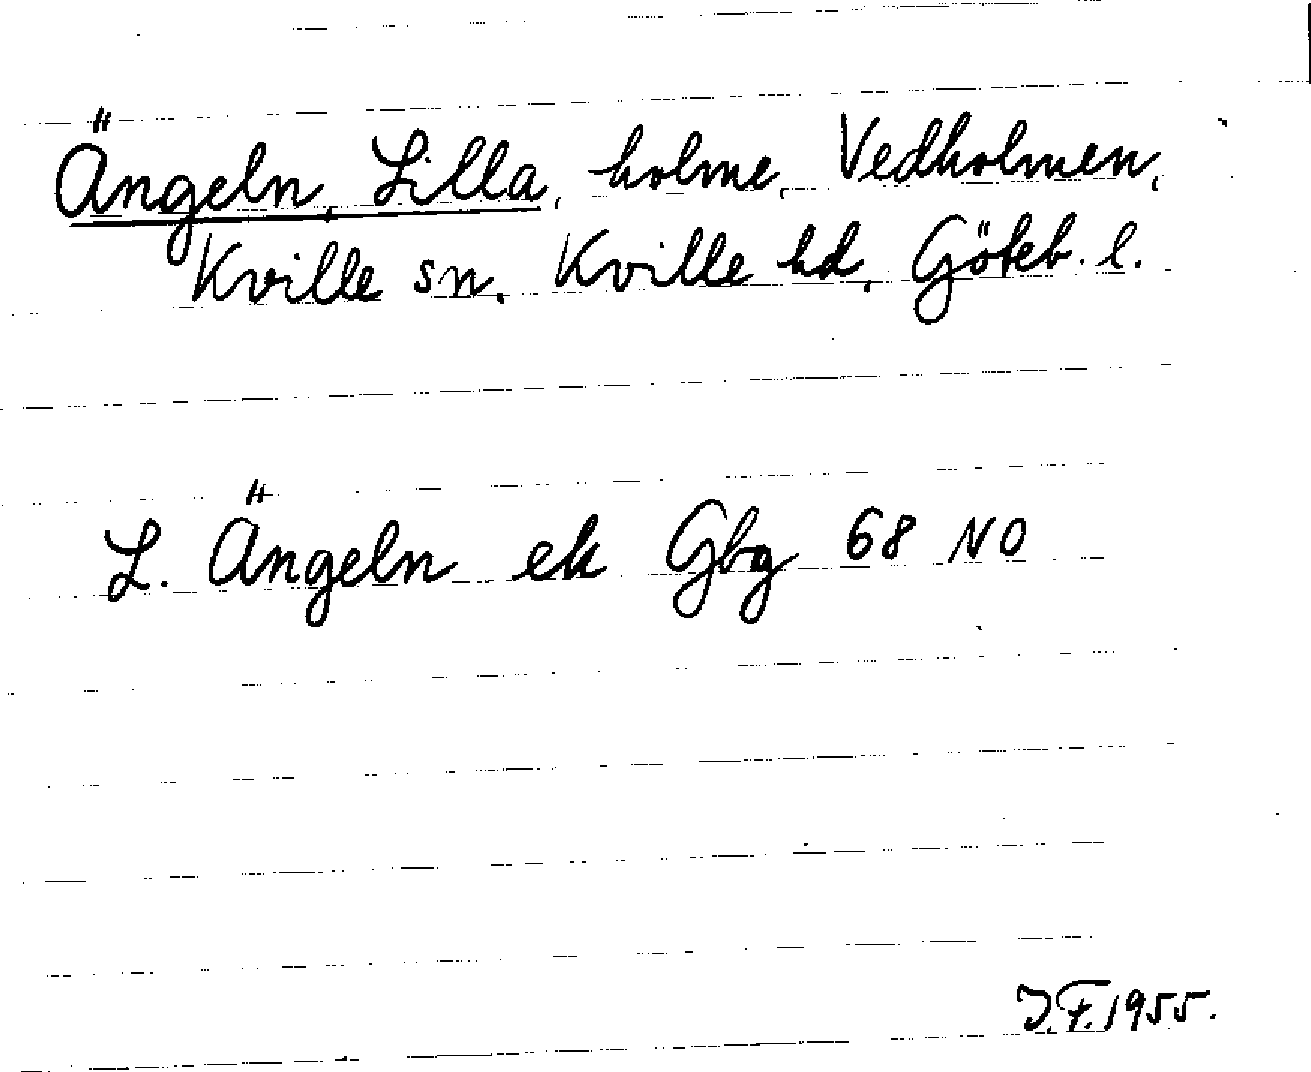 Ängeln, Lilla, holme, Vedholmen,
Kville sn, Kville hd, Göteb. l.
L. Ängeln ek Gbg 68 NO
J.F. 1955.